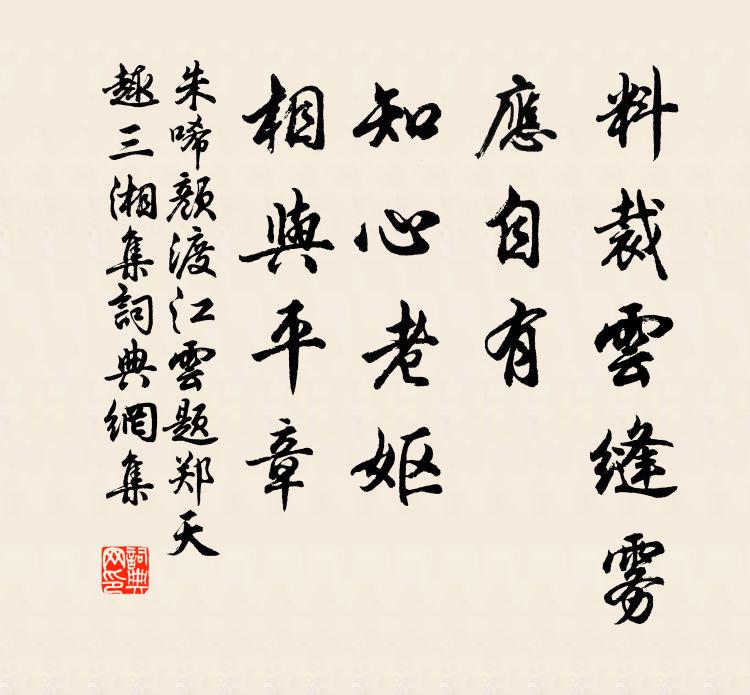 料裁雲縫雾
應自有
知心老妪
相與平章
朱唏颜渡江雲题郑天
趣三湘集詞典網集
詞典网印